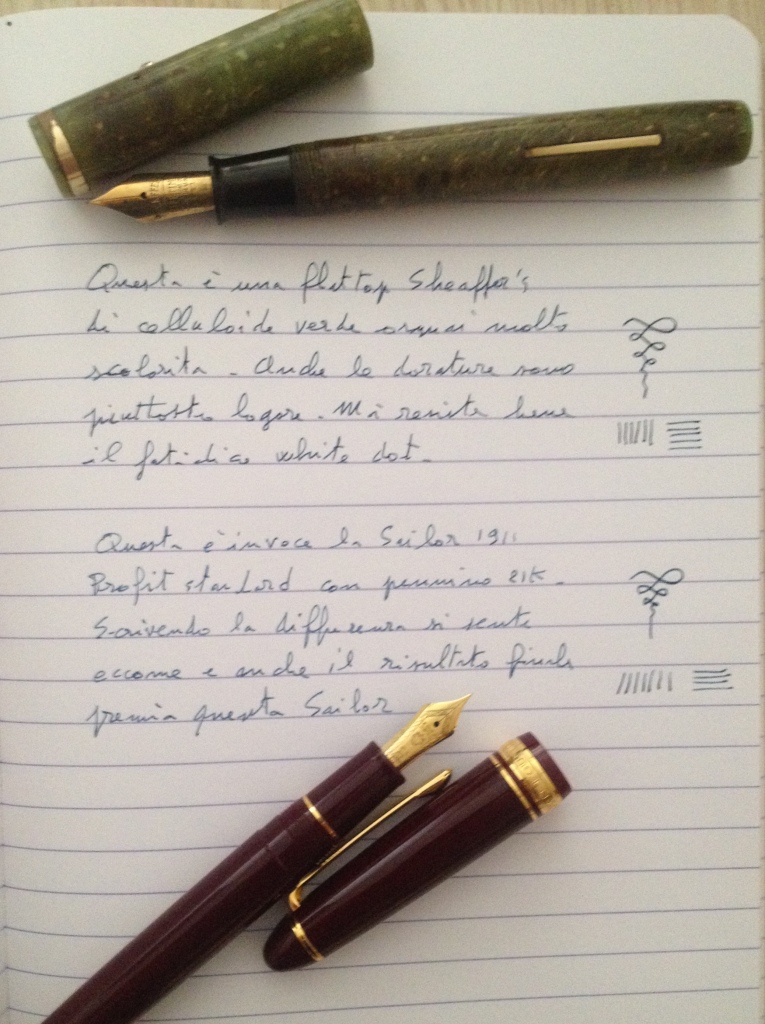 Questa è una flattop Sheaffer's
di celluloide verde ormai molto
scolorita. Anche le dorature sono
piuttosto logore. Mi resiste bene
il fatidico white dot.
Questa è invece la Sailor 1911
Profit standard con pennino 21K.
Scrivendo la differenza si sente
eccome e anche il risultato finale
premia questa Sailor